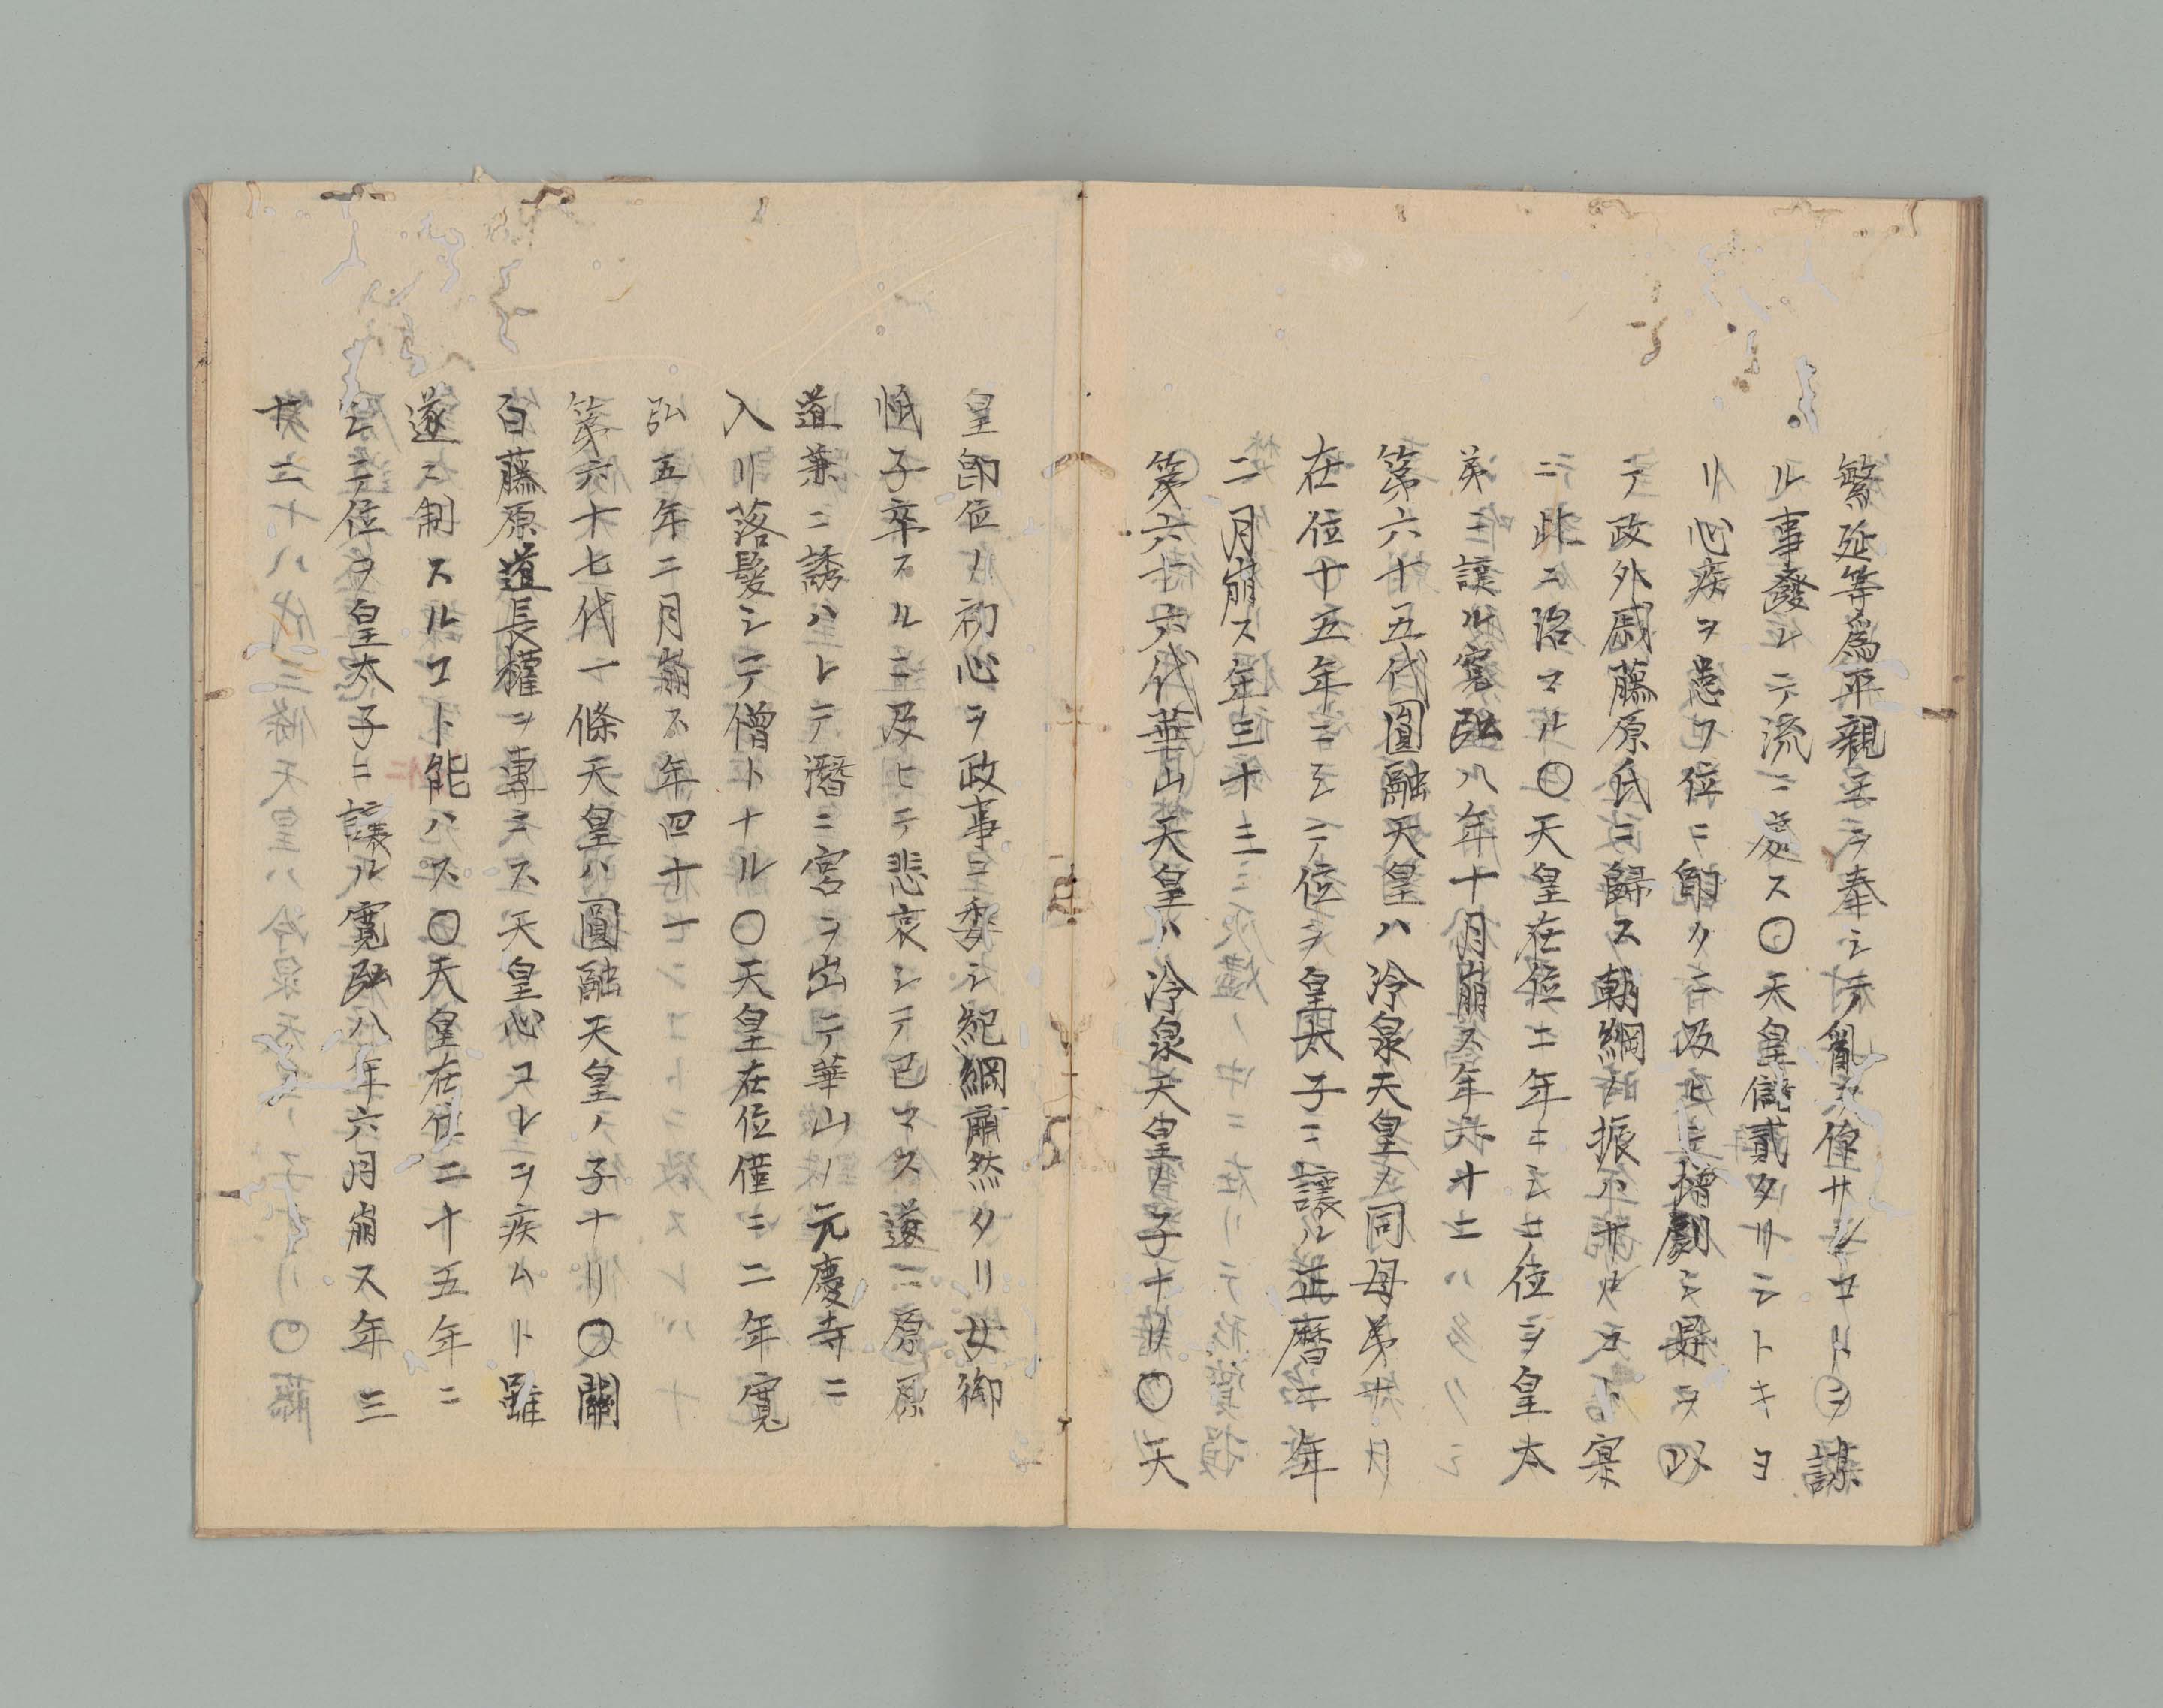 繁延等爲平親王ヲ奉シテ亂ヲ倡サンコトヲ謀
ル事發レテ流ニ處ス〇天皇儲貳タリシトキヨ
リ心疾ヲ患フ位ニ卽クニ及ヒ增劇シ是ヲ以
テ政外戚藤原氏ニ歸ス朝綱ノ振ハサルコト寔
ニ此ニ治マル〇天皇在位二年ニシテ位ヲ皇太
弟ニ讓ル寬弘八年十月崩ス年六十二
第六十五代圓融天皇ハ冷泉天皇ノ同母弟ナリ
在位十五年ニシテ位ヲ皇太子ニ讓ル正曆二年
二月崩ス年三十三
第六十六代華山天皇ハ冷泉天皇ノ子ナリ〇天
皇卽位ノ初心ヲ政事ニ委シ紀綱肅然タリ女御
忯子卒スルニ及ヒテ悲哀シテ已マス遂ニ原
道兼ニ誘ハレテ潛ニ宮ヲ出テ華山ノ元慶寺ニ
入リ落髮シテ僧トナル〇天皇在位僅ニ二年寬
弘五年二月崩ス年四十一
第六十七代一條天皇ハ圓融天皇ノ子ナリ〇關
白藤原道長權ヲ專ニス天皇心コレヲ疾ムト雖
遂ニ制スルコト能ハス〇天皇在位二十五年ニ
シテ位ヲ皇太子ニ讓ル寬弘八年六月崩ス年三
十二